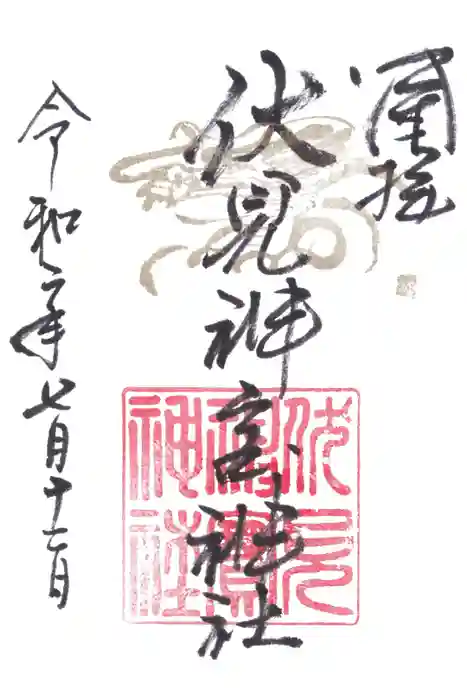 奉拝
伏見神宝神社
令和二年七月十一日
伏見
神寶
神社